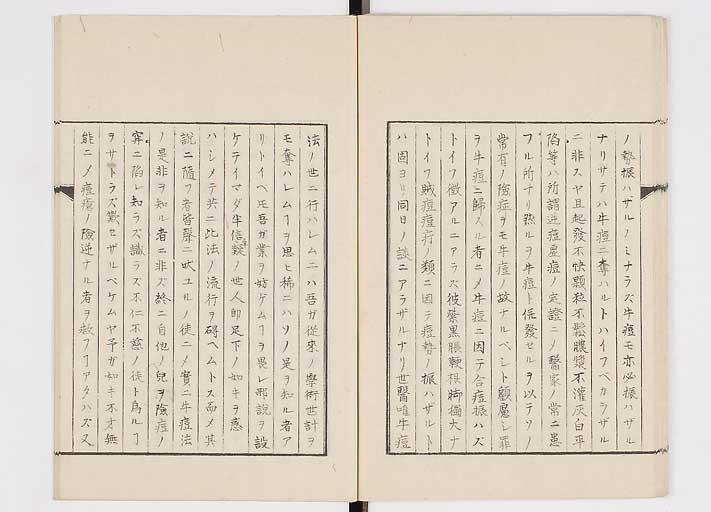 ノ勢振ハザルノミナラズ牛痘モ亦必振ハザル
ナリサテハ牛痘ニ奪ハルトハイフベカラザル
ニ非スヤ且起發不快顆粒不鬆膿漿不灌灰白平
陷等ハ所謂逆痘虚痘ノ定證ニメ醫家ノ常ニ患
フル所ナリ然ルヲ牛痘ト併發セルヲ以テソノ
常有ノ險症ヲモ牛痘ノ故ナルベシト顧慮シ罪
ヲ牛痘ニ歸スル者ニメ牛痘ニ因テ合痘振ハズ
トイフ徴アルニアラズ彼紫黒脹硬根脚擴大ナ
トイフ賊痘痘疔ノ類ニ因テ痘勢ノ振ハザルト
ハ固ヨリ同日ノ談ニアラザルナリ世醫唯牛痘
法ノ世ニ行ハレムニハ吾ガ從來ノ學術世計ヲ
モ奪ハレムヿヲ思ヒ稀ニハソノ是ヲ知ル者ア
リトイヘモ吾ガ業ヲ妨ゲムヿヲ畏レ邪説ヲ設
ケテイマダ半信半疑ノ世人即足下ノ如キヲ惑
ハシメテ共ニ此法ノ流行ヲ碍ヘムトス而メ其
説ニ隨フ者皆聲ニ吠ユルノ徒ニメ實ニ牛痘法
ノ是非ヲ知ル者ニ非ズ終ニ自他ノ兒ヲ險痘ノ
穽ニ陷レ知ラズ識ラズ不仁不慈ノ徒ト爲ルヿ
ヲサトラズ歎セザルベケムヤ予ガ如キ不才無
能ニメ痘瘡ノ險逆ナル者ヲ救フヿアタハズ又